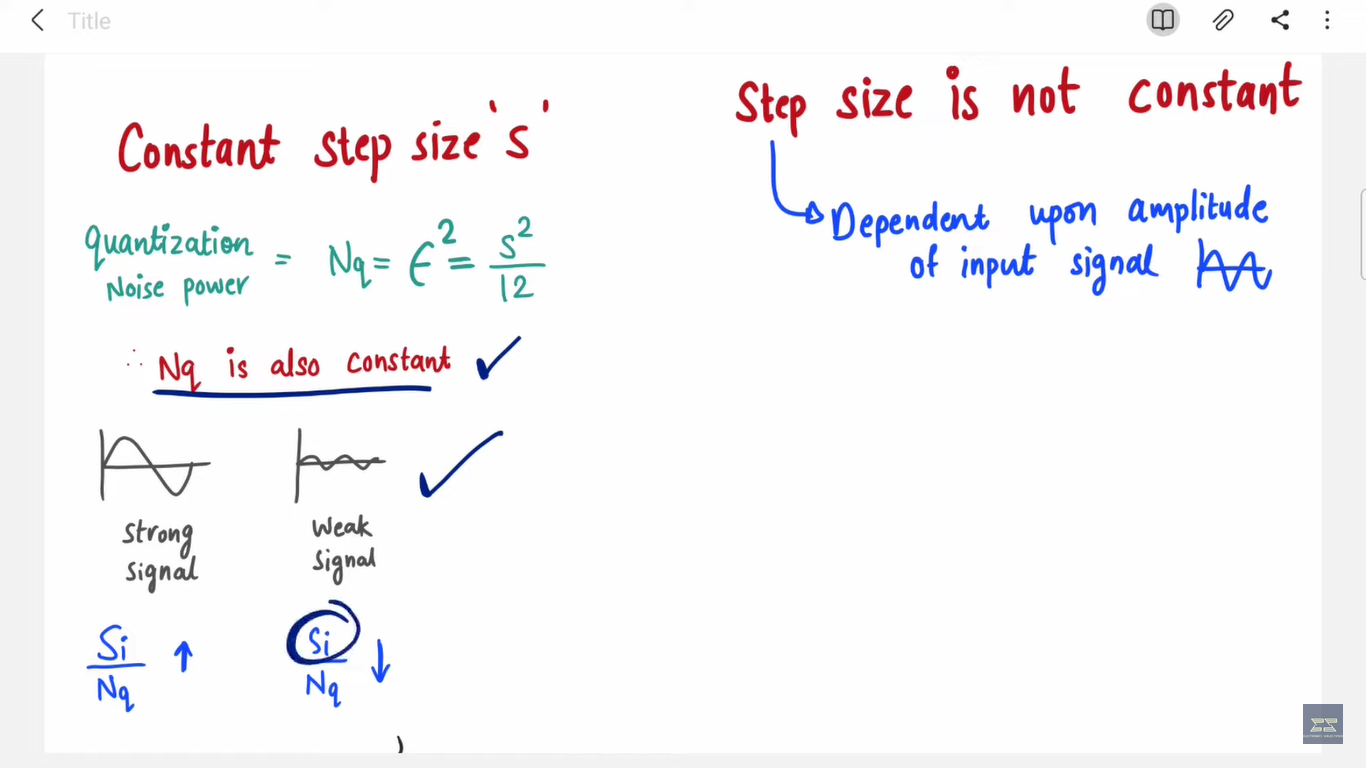 Title
Constant step size 's'
quantization
Noise power
= Nq = ϵ² = s²/12
∴ Nq is also constant ✓
Strong
signal
Weak
signal
✓
Si/Nq ↑
Si/Nq ↓
Step size is not constant
Dependent upon amplitude
of input signal